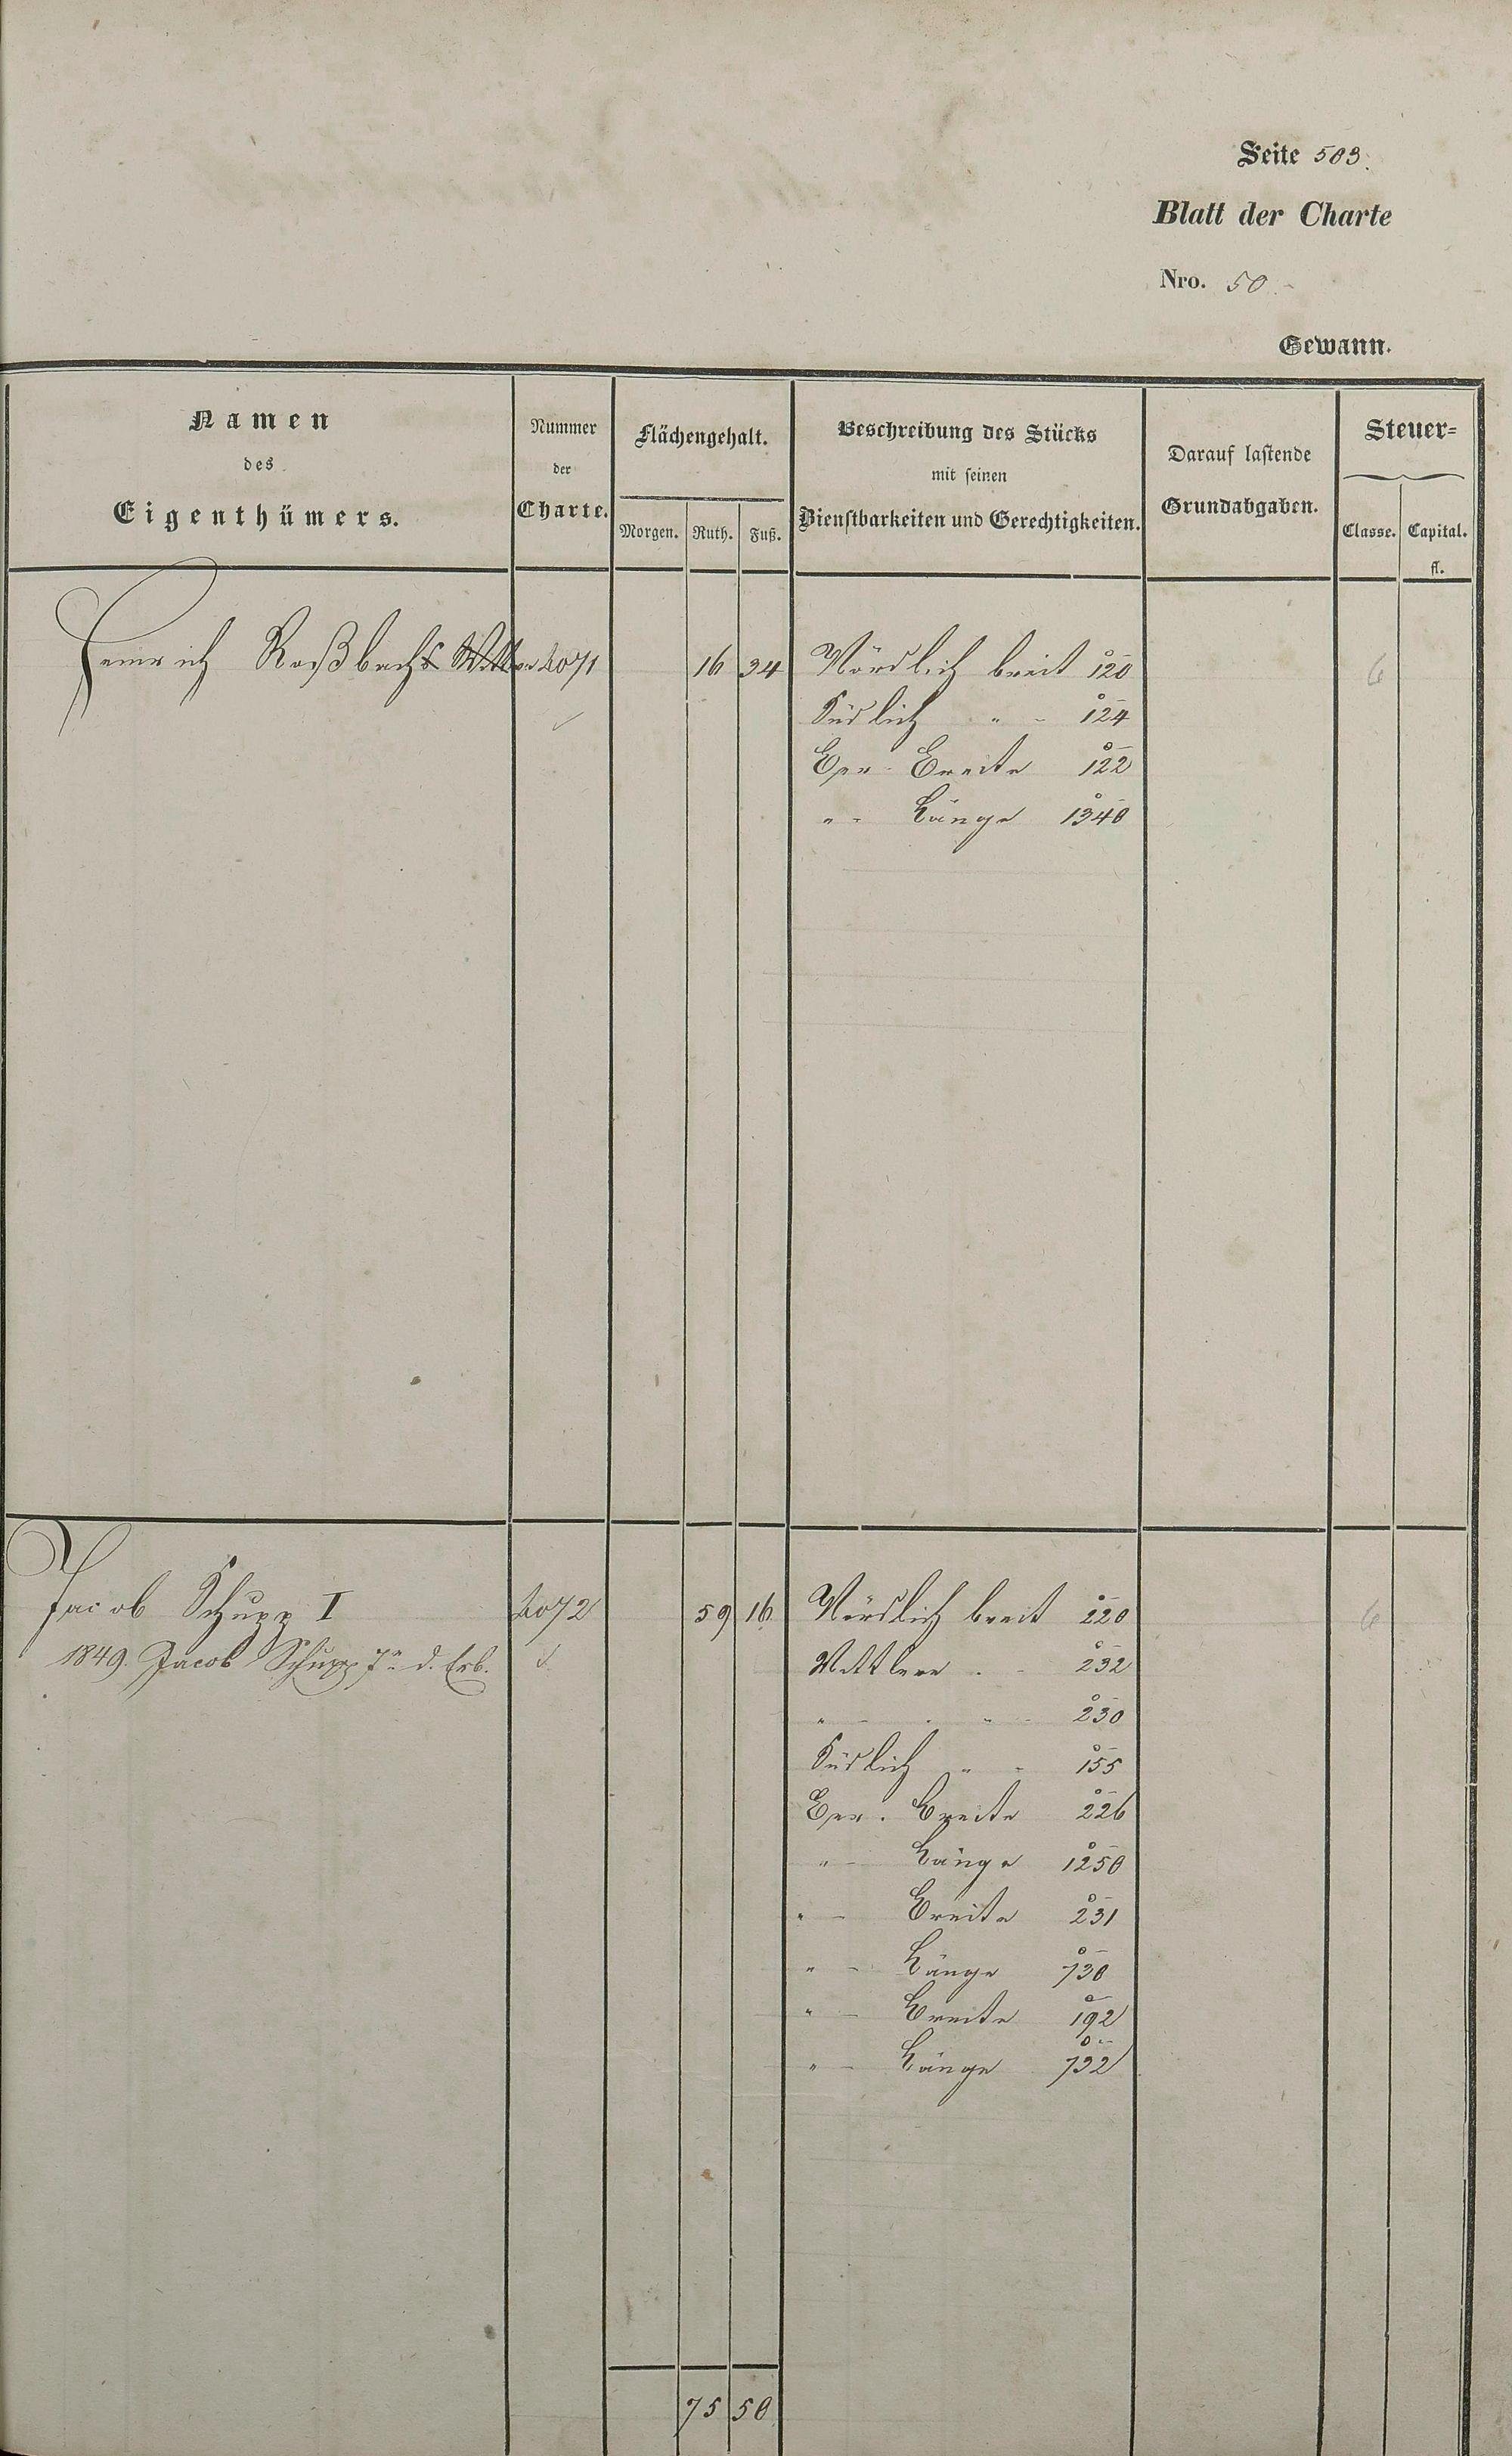 Seite 503.
Blatt der Charte
Nro. 50.
Gewann.
Namen
des
Eigenthümers.
Nummer
der
Charte.
Flächengehalt.
Morgen. Ruth. Fuß.
Beschreibung des Stücks
mit seinen
Dienstbarkeiten und Gerechtigkeiten.
Darauf lastende
Grundabgaben.
Steuer=
Classe. Capital.
fl.
Heinrich Roßbachs 4071 16 34 Nördlich breit 120 6
Südlich " - 124
Gen. Breite 122
" - Länge 1340
Jacob Schupp I 4072 59 16 Nördlich breit 220 6
1849. Jacob Schupp d. Erb. Mittlere . - 232
" - . " - 230
Südlich " - 155
Gen. Breite 226
" - Länge 1250
" - Breite 231
" - Länge 730
" - Breite 192
" - Länge 732
75 50